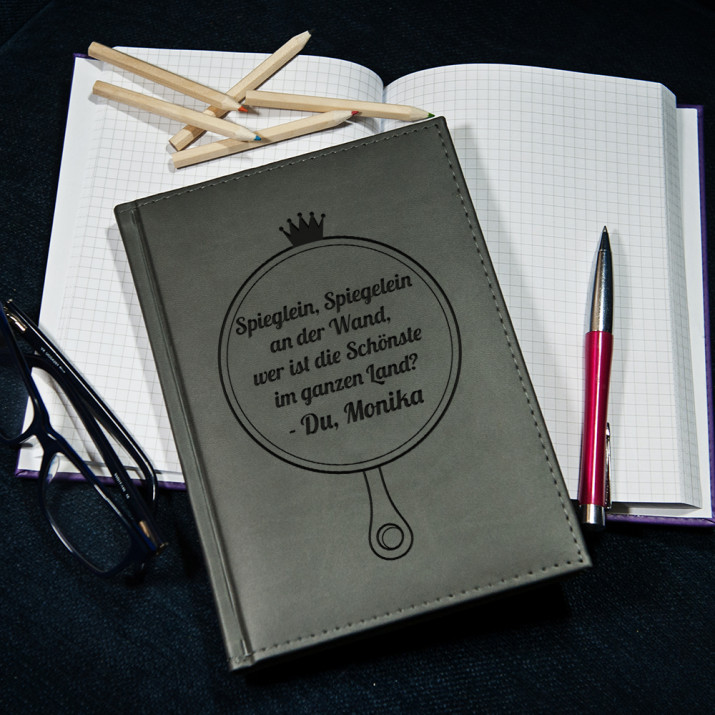 Spieglein, Spiegelein
an der Wand,
wer ist die Schönste
im ganzen Land?
- Du, Monika